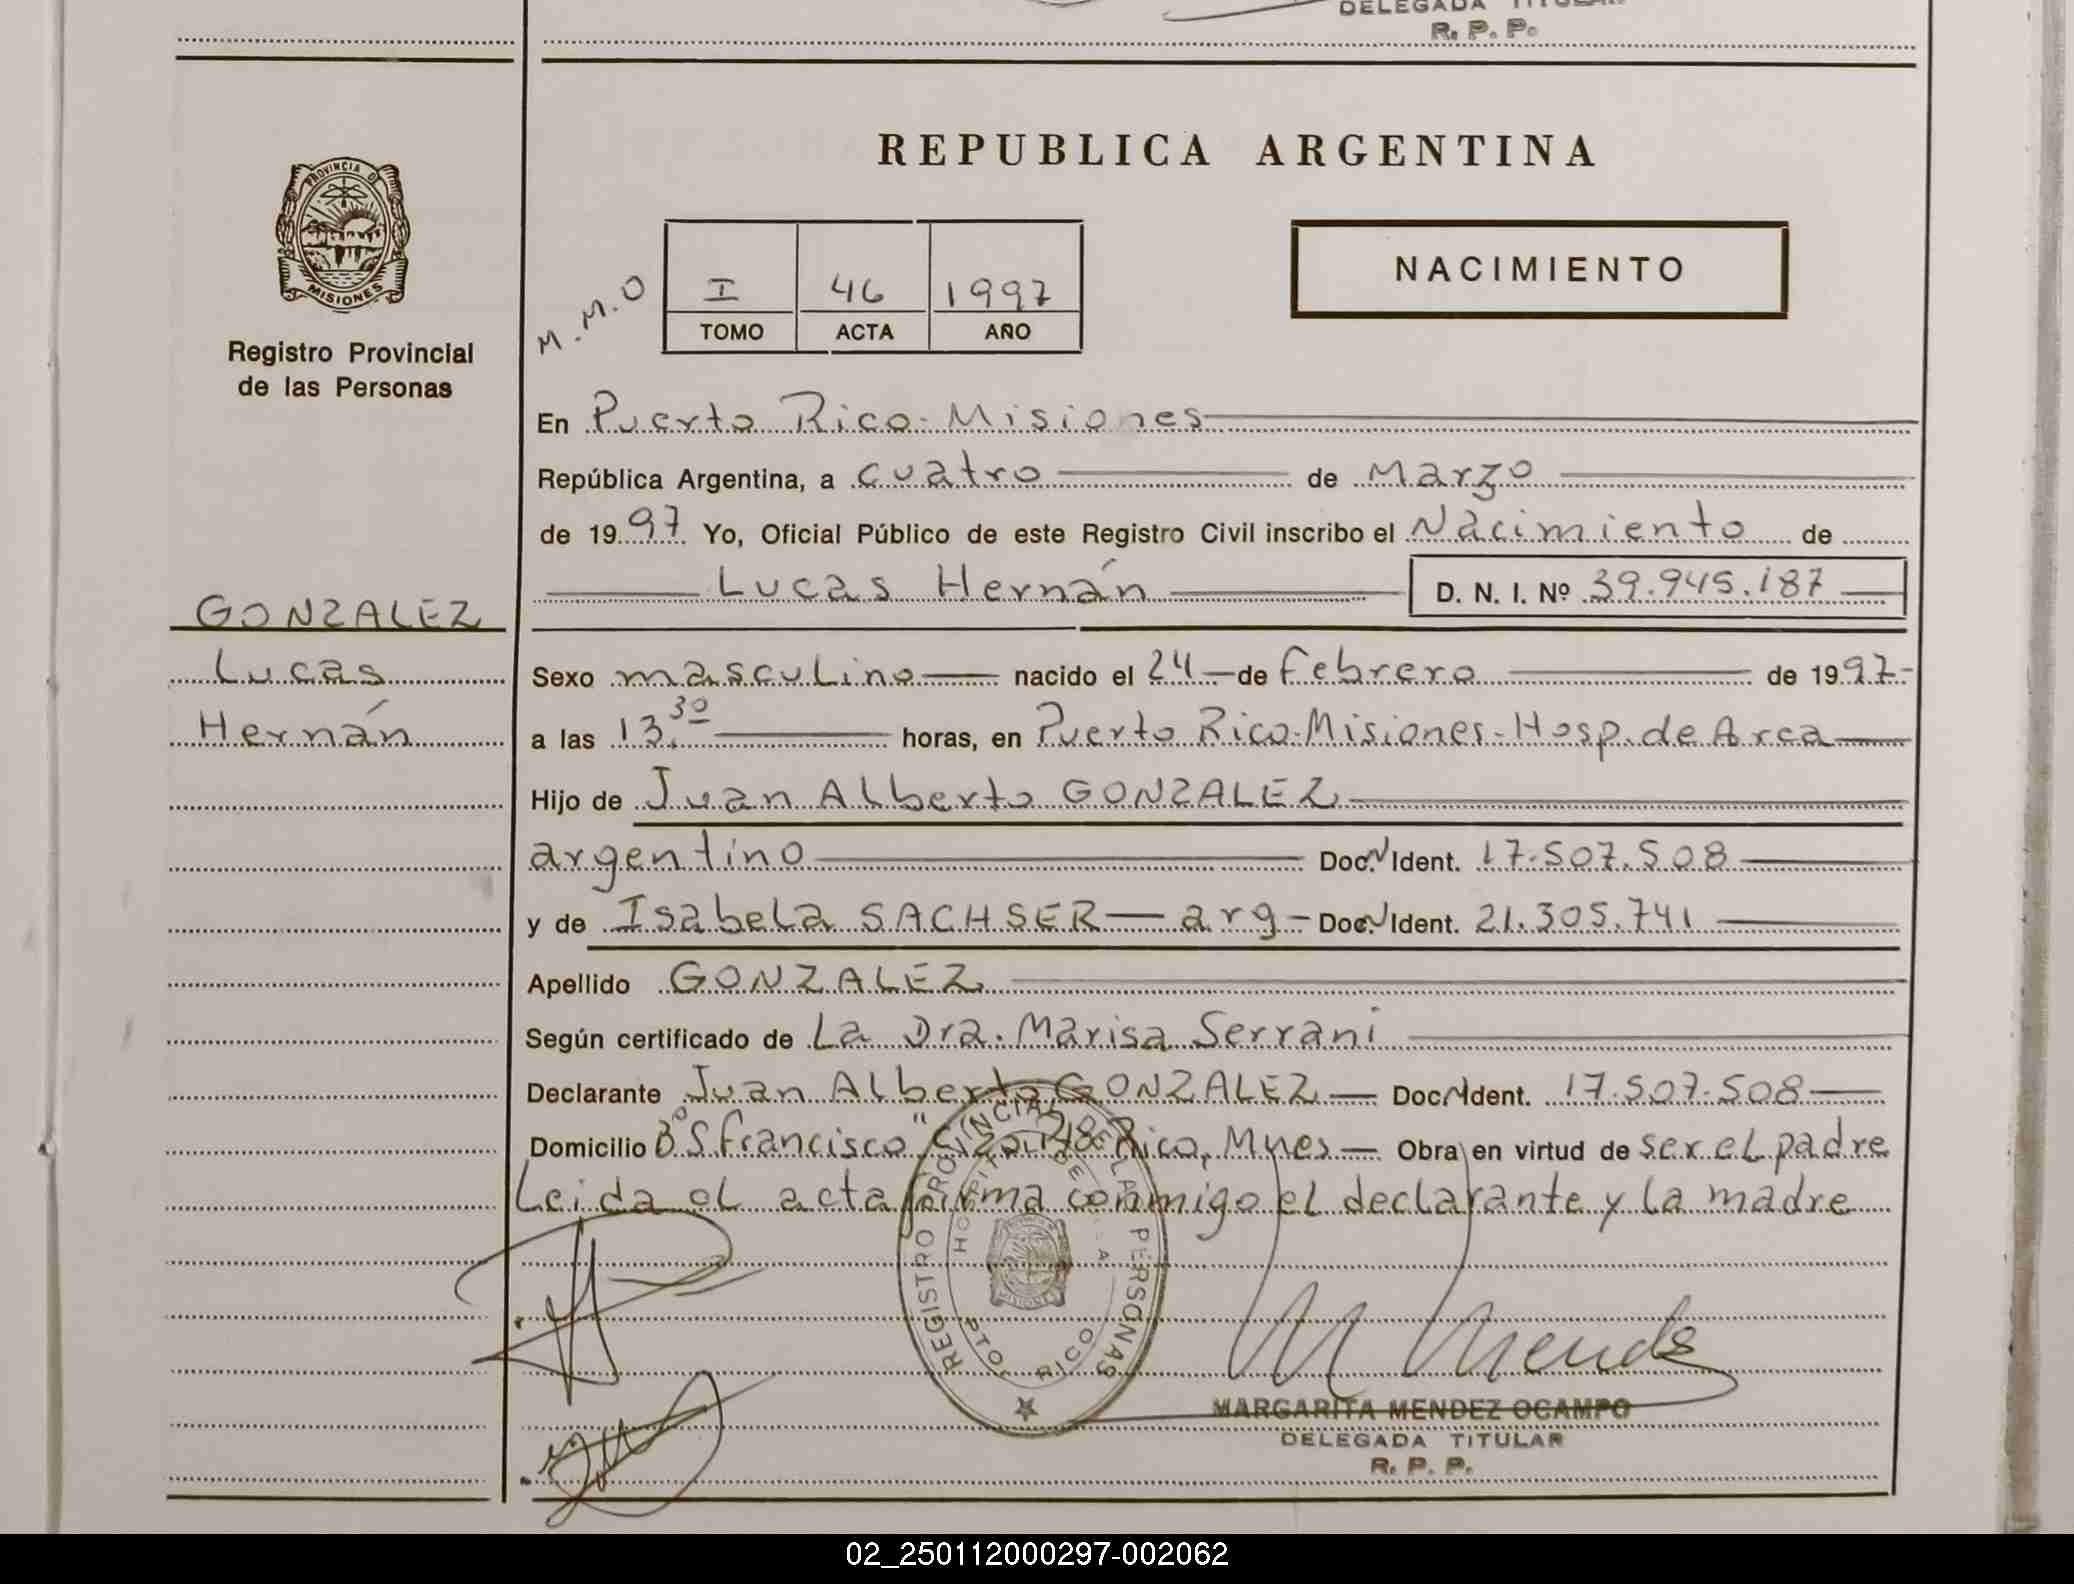 DELEGADA TITULAR
R. P. P.
PROVINCIA D
MISIONES
Registro Provincial
de las Personas
GONZALEZ
Lucas
Hernán
REPUBLICA ARGENTINA
M.M.O
I 46 1997
TOMO ACTA AÑO
NACIMIENTO
En Puerto Rico. Misiones
República Argentina, a cuatro de Marzo
de 1997 Yo, Oficial Público de este Registro Civil inscribo el Nacimiento de
Lucas Hernán D. N. I. Nº 39.945.187
Sexo masculino nacido el 24 de Febrero de 1997-
a las 13.30 horas, en Puerto Rico.Misiones-Hosp.de Area
Hijo de Juan Alberto GONZALEZ
argentino Doc. N Ident. 17.507.508
y de Isabela SACHSER - arg - Doc. N Ident. 21.305.741
Apellido GONZALEZ
Según certificado de La Dra. Marisa Serrani
Declarante Juan Alberto GONZALEZ Doc. N Ident. 17.507.508
Domicilio Bº S.Francisco" Rico, Mnes Obra en virtud de ser el padre
Leida el acta firma conmigo el declarante y la madre
REGISTRO PROVINCIAL DE LAS PERSONAS
HOSPITAL DE
PTO. RICO
MISIONES
M Mendez
MARGARITA MENDEZ OCAMPO
DELEGADA TITULAR
R. P. P.
02_250112000297-002062